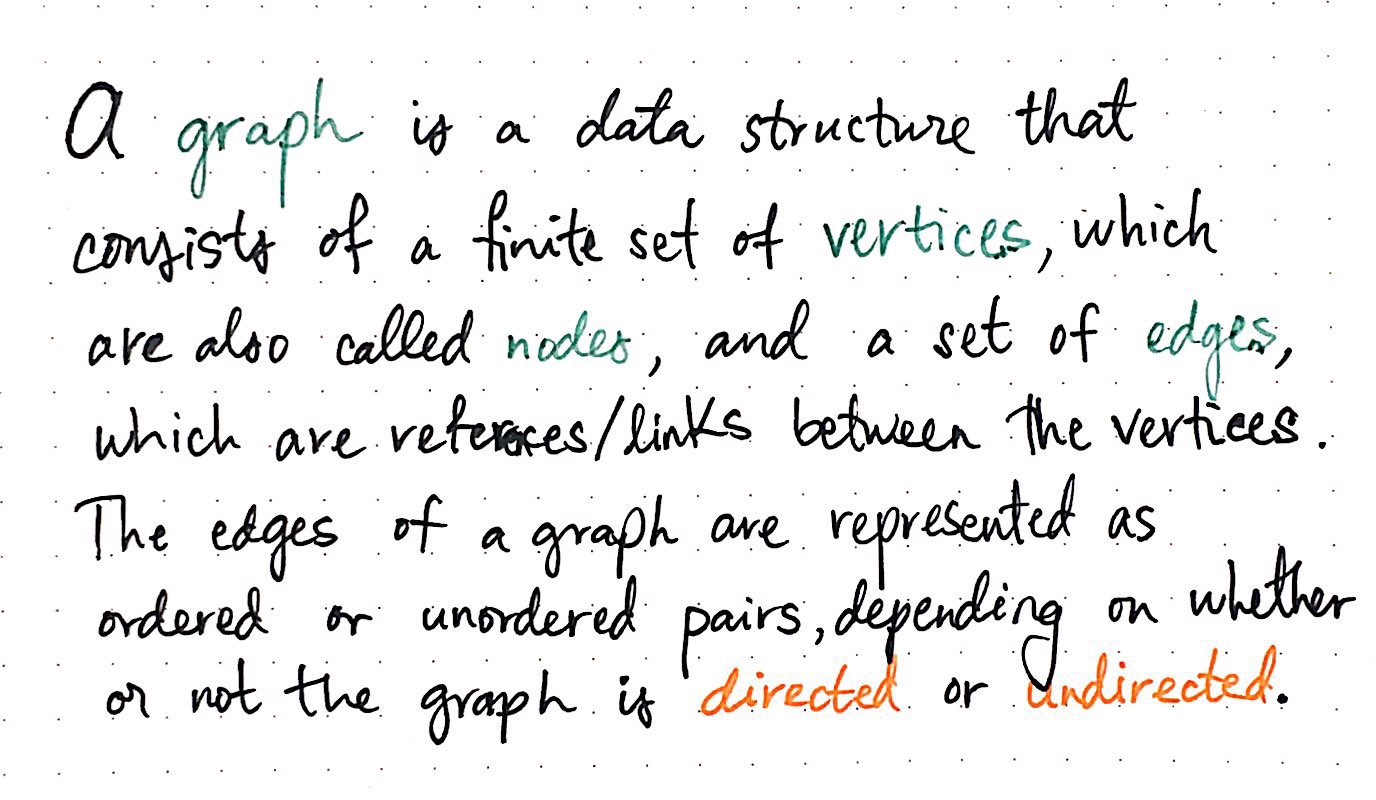 A graph is a data structure that
consists of a finite set of vertices, which
are also called nodes, and a set of edges,
which are references/links between the vertices.
The edges of a graph are represented as
ordered or unordered pairs, depending on whether
or not the graph is directed or undirected.